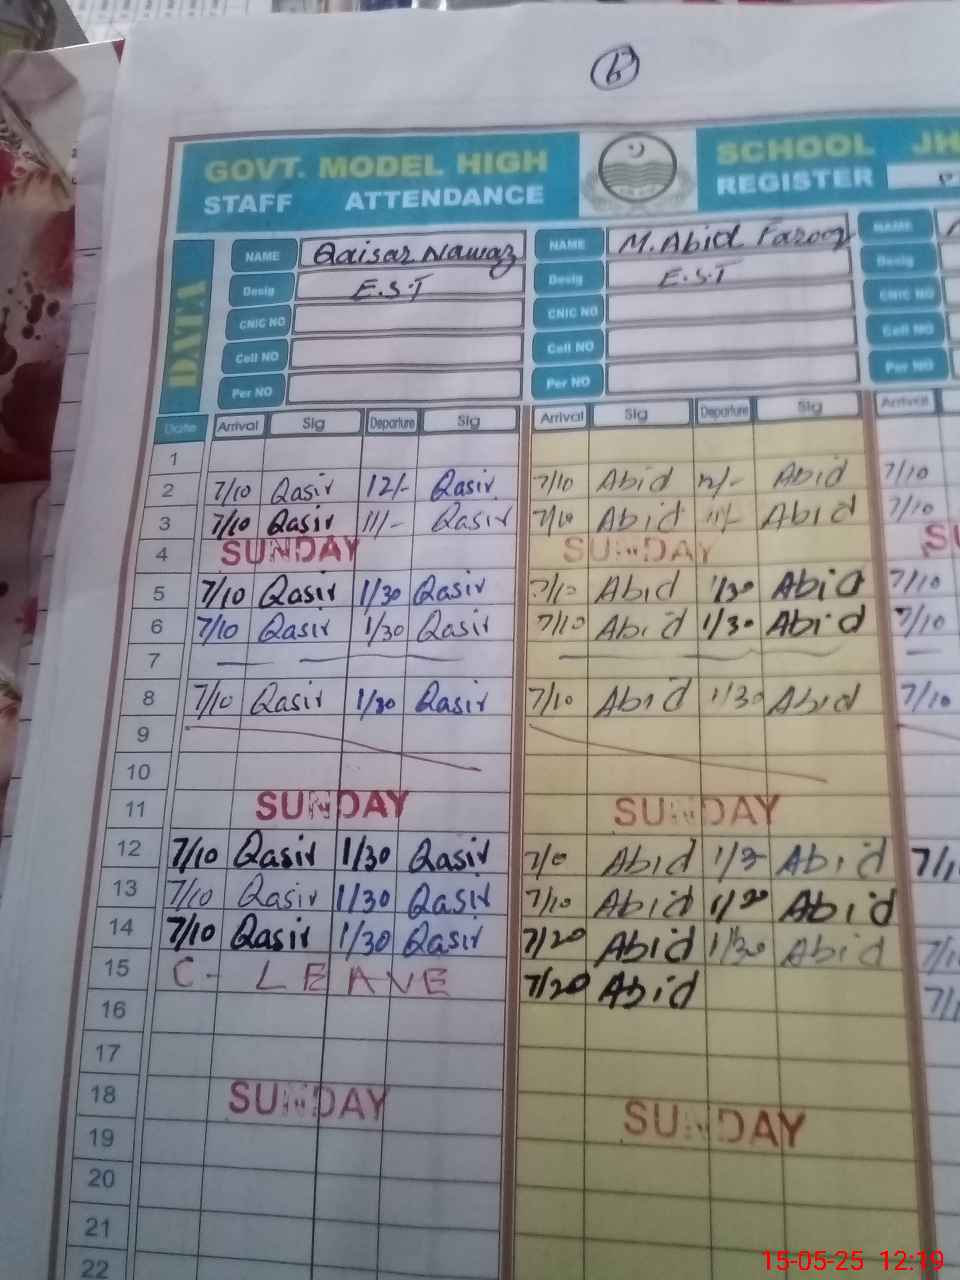 6
GOVT. MODEL HIGH SCHOOL JH
STAFF ATTENDANCE REGISTER
DATA
NAME Qaisar Nawaz NAME M. Abid Farooq NAME
Desig E.S.T Desig E.S.T Desig
CNIC NO CNIC NO CNIC NO
Cell NO Cell NO Cell NO
Per NO Per NO Per NO
Date Arrival Sig Departure Sig Arrival Sig Departure Sig Arrival
1
2 7/10 Qasir 12/- Qasir 7/10 Abid 12/- Abid 7/10
3 7/10 Qasir 11/- Qasir 7/10 Abid 11/- Abid 7/10
4 SUNDAY SUNDAY SU
5 7/10 Qasir 1/30 Qasir 7/10 Abid 1/30 Abid 7/10
6 7/10 Qasir 1/30 Qasir 7/10 Abid 1/30 Abid 7/10
7
8 7/10 Qasir 1/30 Qasir 7/10 Abid 1/30 Abid 7/10
9
10
11 SUNDAY SUNDAY
12 7/10 Qasir 1/30 Qasir 7/10 Abid Abid 7/1
13 7/10 Qasir 1/30 Qasir 7/10 Abid 1/30 Abid
14 7/10 Qasir 1/30 Qasir 7/20 Abid 1/30 Abid 7/1
15 C- LEAVE 7/20 Abid 7/1
16
17
18 SUNDAY SUNDAY
19
20
21
22
15-05-25 12:19